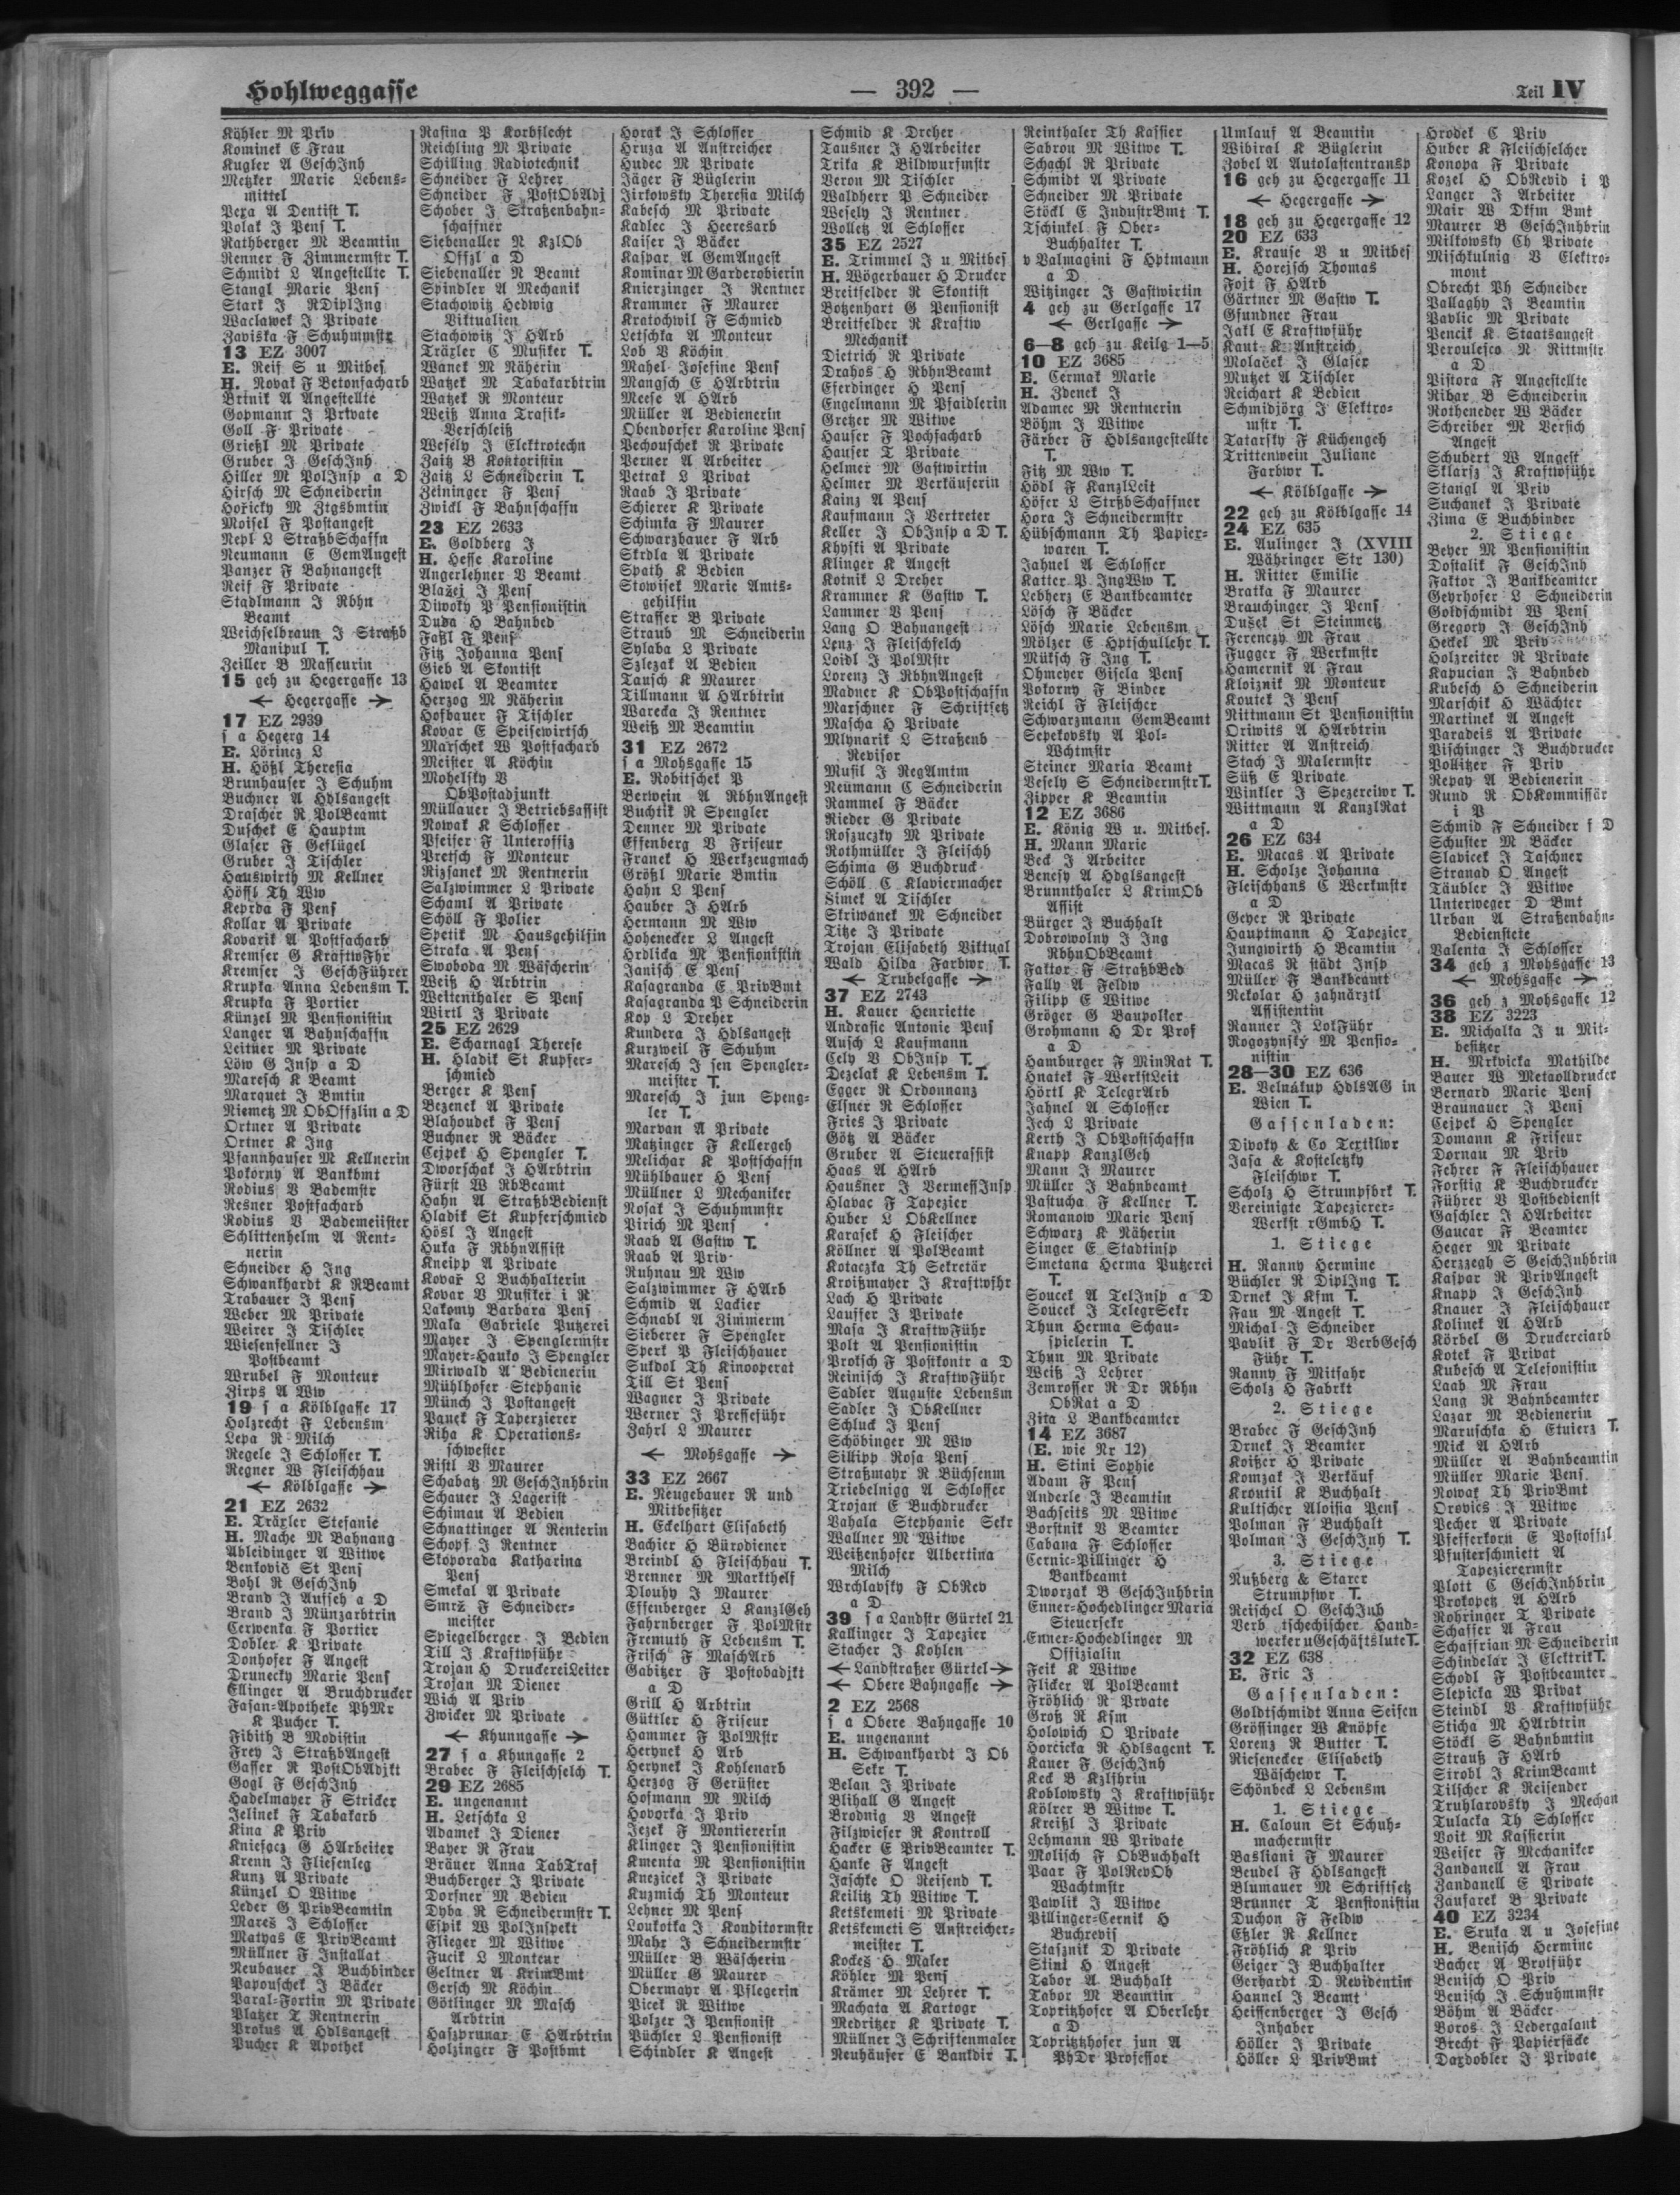 Hohlweggasse
— 392 —
Teil IV
Kähler M Priv
Kominek E Frau
Kugler A GeschInh
Metzker Marie Lebens-
mittel
Pexa A Dentist T.
Polak J Pens T.
Rathberger M Beamtin
Renner F Zimmermstr T.
Schmidt L Angestellte T.
Stangl Marie Pens
Stark J RDiplIng
Waclawek J Private
Zaviska F Schuhmmstr
13 EZ 3007
E. Reif S u Mitbes
H. Novak F Betonfacharb
Brinik A Angestellte
Gopmann J Private
Goll F Private
Grießl M Private
Gruber J GeschInh
Hiller M PolInsp a D
Hirsch M Schneiderin
Hořicky M Ztgsbmtin
Moisel F Postangest
Nepl L StraßbSchaffn
Neumann E GemAngest
Panzer F Bahnangest
Reif F Private
Stadlmann J Rbhn
Beamt
Weichselbraun J Straßb
Manipul T.
Zeiller B Masseurin
15 geh zu Hegergasse 13
← Hegergasse →
17 EZ 2939
s a Hegerg 14
E. Lörincz L
H. Hößl Theresia
Brunhauser J Schuhm
Buchner A Hdlsangest
Drascher R PolBeamt
Duschek E Hauptm
Glaser F Geflügel
Gruber J Tischler
Hauswirth M Kellner
Höffl Th Ww
Keprda F Pens
Kollar A Private
Kovarik A Postfacharb
Kremser G KraftwFhr
Kremser J GeschFührer
Krupka Anna Lebensm T.
Krupka F Portier
Künzel M Pensionistin
Langer A Bahnschaffn
Leitner M Private
Löw G Insp a D
Maresch K Beamt
Marquet J Bmtin
Niemetz M ObOffzlin a D
Ortner A Private
Ortner K Ing
Pfannhauser M Kellnerin
Pokorny A Bankbmt
Rodius V Bademstr
Resner Postfacharb
Rodius V Bademeiister
Schlittenhelm A Rent-
nerin
Schneider H Ing
Schwankhardt K RBeamt
Trabauer J Pens
Weber M Private
Weirer J Tischler
Wiesensellner J
Postbeamt
Wrubel F Monteur
Zirps A Ww
19 s a Kölblgasse 17
Holzrecht F Lebensm
Lepa R Milch
Regele J Schlosser T.
Regner W Fleischhau
← Kölblgasse →
21 EZ 2632
E. Träxler Stefanie
H. Mache M Bahnang
Ableidinger A Witwe
Benkovič St Pens
Bohl R GeschInh
Brand J Aufseh a D
Brand J Münzarbtrin
Cerwenka F Portier
Dobler K Private
Donhofer F Angest
Drunecky Marie Pens
Ellinger A Bruchdrucker
Fasan-Apotheke PhMr
K Pucher T.
Fibith B Modistin
Frey J StraßbAngest
Gasser R PostObAdjkt
Gogl F GeschInh
Hadelmayer F Stricker
Jelinek F Tabakarb
Kina K Priv
Kniesacz G HArbeiter
Krenn J Fliesenleg
Kunz A Private
Künzel O Witwe
Leder G PrivBeamtin
Mareš J Schlosser
Matyas E PrivBeamt
Müllner F Installat
Neubauer J Buchbinder
Papouschek J Bäcker
Paral-Fortin M Private
Platzer T Rentnerin
Prokus A Hdlsangest
Pucher K Apothek
Rasina P Korbflecht
Reichling M Private
Schilling Radiotechnik
Schneider F Lehrer
Schneider F PostObAdj
Schober J Straßenbahn-
schaffner
Siebenaller N KzlOb
Offzl a D
Siebenaller N Beamt
Spindler A Mechanik
Stachowitz Hedwig
Viktualien
Stachowitz J HArb
Träxler C Musiker T.
Wanek M Näherin
Watzek M Tabakarbtrin
Watzek R Monteur
Weiß Anna Trafik-
Verschleiß
Wesely J Elektrotechn
Zaitz B Kontoristin
Zaitz L Schneiderin T.
Zeininger F Pens
Zwickl F Bahnschaffn
23 EZ 2633
E. Goldberg J
H. Hesse Karoline
Angerlehner V Beamt
Blažej J Pens
Diwoky P Pensionistin
Duda H Bahnbed
Faßl F Pens
Fitz Johanna Pens
Gieb A Skontist
Hawel A Beamter
Herzog M Näherin
Hofbauer F Tischler
Kovar E Speisewirtsch
Marschek W Postfacharb
Meister A Köchin
Mohelsky V
ObPostadjunkt
Müllauer J Betriebsassist
Nowak K Schlosser
Pfeifer F Unteroffiz
Pretsch F Monteur
Rizsanek M Rentnerin
Salzwimmer L Private
Schaml A Private
Schöll F Polier
Spetik M Hausgehilfin
Straka A Pens
Swoboda M Wäscherin
Weiß H Arbtrin
Weitenthaler S Pens
Wirtl J Private
25 EZ 2629
E. Scharnagl Therese
H. Hladik St Kupfer-
schmied
Berger K Pens
Bezenek A Private
Blahoudek F Pens
Buchner R Bäcker
Cejpek H Spengler T.
Dworschak J HArbtrin
Fürst W RbBeamt
Hahn A StraßbBedienst
Hladik St Kupferschmied
Hösl J Angest
Huka F RbhnAssist
Kneipp A Private
Kovař L Buchhalterin
Kovar V Musiker i R
Lakomy Barbara Pens
Maka Gabriele Putzerei
Mayer J Spenglermstr
Mayer-Hauko J Spengler
Mirwald A Bedienerin
Mühlhofer Stephanie
Münch J Postangest
Panek F Taperzierer
Riha K Operations-
schwester
Ristl V Maurer
Schabatz M GeschInhbrin
Schauer J Lagerist
Schimau A Bedien
Schnattinger A Renterin
Schopf J Rentner
Skoporada Katharina
Pens
Smekal A Private
Smrž F Schneider-
meister
Spiegelberger J Bedien
Till J Kraftwführ
Trojan H DruckereiLeiter
Trojan M Diener
Wich A Priv
Zwicker M Private
← Khunngasse →
27 s a Khungasse 2
Brabec F Fleischselch T.
29 EZ 2685
E. ungenannt
H. Letschka L
Adamek J Diener
Bayer R Frau
Bräuer Anna TabTraf
Buchberger J Private
Dorfner M Bedien
Dyba R Schneidermstr T.
Espik W PolInspekt
Flieger M Witwe
Fucik L Monteur
Geltner A KrimBmt
Gersch M Köchin
Götlinger M Masch
Arbtrin
Haszprunar E HArbtrin
Holzinger F Postbmt
Horak J Schlosser
Hruza A Anstreicher
Hudec M Private
Jäger F Büglerin
Jirkowsky Theresia Milch
Kabesch M Private
Kadlec J Heeresarb
Kaiser J Bäcker
Kaspar A GemAngest
Kominar M Garderobierin
Knierzinger J Rentner
Krammer F Maurer
Kratochwil F Schmied
Letschka A Monteur
Lob V Köchin
Mahel Josefine Pens
Mangsch E HArbtrin
Meese A HArb
Müller A Bedienerin
Obendorfer Karoline Pens
Pechouschek R Private
Perner A Arbeiter
Petrak L Privat
Raab J Private
Schierer K Private
Schimka F Maurer
Schwarzbauer F Arb
Skrdla A Private
Spath K Bedien
Stowisek Marie Amts-
gehilfin
Strasser B Private
Straub M Schneiderin
Sylaba L Private
Szlezak A Bedien
Tausch K Maurer
Tillmann A HArbtrin
Warecka J Rentner
Weiß M Beamtin
31 EZ 2672
s a Mohsgasse 15
E. Robitschek V
Berwein A RbhnAngest
Buchtik R Spengler
Denner M Private
Effenberg V Friseur
Franek H Werkzeugmach
Größl Marie Bmtin
Hahn L Pens
Hauber J HArb
Hermann M Ww
Hohenecker L Angest
Hrdlicka M Pensionistin
Janisch E Pens
Kasagranda E PrivBmt
Kasagranda P Schneiderin
Kop L Dreher
Kundera J Hdlsangest
Kurzweil F Schuhm
Maresch J sen Spengler-
meister T.
Maresch J jun Speng-
ler T.
Marvan A Private
Matzinger F Kellergeh
Melichar K Postschaffn
Mühlbauer H Pens
Müllner L Mechaniker
Nosak J Schuhmmstr
Pirich M Pens
Raab A Gastw T.
Raab A Priv
Ruhnau M Ww
Salzwimmer F HArb
Schmid A Lackier
Schnabl A Zimmerm
Sieberer F Spengler
Sperk P Fleischhauer
Sukdol Th Kinooperat
Till St Pens
Wagner J Private
Werner J Presseführ
Zahrl L Maurer
← Mohsgasse →
33 EZ 2667
E. Neugebauer R und
Mitbesitzer
H. Eckelhart Elisabeth
Bachier H Bürodiener
Breindl H Fleischhau T.
Brenner M Markthelf
Dlouhy J Maurer
Effenberger L KanzlGeh
Fahrnberger F PolMstr
Fremuth F Lebensm T.
Frisch F MaschArb
Gabitzer F Postobadjkt
a D
Grill H Arbtrin
Güttler H Friseur
Hammer F PolMstr
Herynek H Arb
Herynek J Kohlenarb
Herzog F Gerüster
Hofmann M Milch
Hovorka J Priv
Jezek F Montiererin
Klinger J Pensionistin
Kmenta M Pensionistin
Knezicek J Private
Kuzmich Th Monteur
Lehner M Pens
Loukotka J Konditormstr
Mahr J Schneidermstr
Müller B Wäscherin
Müller G Maurer
Obermayr A Pflegerin
Picek R Witwe
Polzer J Pensionist
Püchler L Pensionist
Schindler K Angest
Schmid K Dreher
Tausner J HArbeiter
Trika K Bildwurfmstr
Veron M Tischler
Waldherr P Schneider
Wesely J Rentner
Wolletz A Schlosser
35 EZ 2527
E. Trimmel J u Mitbes
H. Wögerbauer H Drucker
Breitfelder R Skontist
Botzenhart G Pensionist
Breitfelder R Kraftw
Mechanik
Dietrich R Private
Drahos H RbhnBeamt
Eferdinger H Pens
Engelmann M Pfaidlerin
Gretzer M Witwe
Hauser F Pochfacharb
Hauser T Private
Helmer M Gastwirtin
Helmer M Verkäuferin
Kainz A Pens
Kaufmann J Vertreter
Keller J ObInsp a D T.
Khyski A Private
Klinger K Angest
Kotnik L Dreher
Krammer K Gastw T.
Lammer V Pens
Lang O Bahnangest
Lenz J Fleischselch
Loidl J PolMstr
Lorenz J RbhnAngest
Madner K ObPostschaffn
Marschner F Schriftsetz
Mascha H Private
Mlynarik L Straßenb
Revisor
Musil J RegAmtm
Neumann C Schneiderin
Rammel F Bäcker
Rieder G Private
Roszuczky M Private
Rothmüller J Fleischh
Schima G Buchdruck
Schöll C Klaviermacher
Simek A Tischler
Skriwanek M Schneider
Titze J Private
Trojan Elisabeth Viktual
Wald Hilda Farbwr T.
← Trubelgasse →
37 EZ 2743
H. Kauer Henriette
Andrasic Antonie Pens
Ausch L Kaufmann
Cely V ObInsp T.
Dezelak K Lebensm T.
Egger R Ordonnanz
Elsner R Schlosser
Fries J Private
Götz A Bäcker
Gruber A Steuerassist
Haas A HArb
Hausner J VermessInsp
Hlavac F Tapezier
Huber L ObKellner
Karasek H Fleischer
Köllner A PolBeamt
Kotaczka Th Sekretär
Kroißmayer J Kraftwfhr
Lach H Private
Lausser J Private
Masa J KraftwFühr
Polt A Pensionistin
Protsch F Postkontr a D
Reinisch J KraftwFühr
Sadler Auguste Lebensm
Sadler J ObKellner
Schluck J Pens
Schöbinger M Ww
Sillipp Rosa Pens
Straßmayr R Büchsenm
Triebelnigg A Schlosser
Trojan E Buchdrucker
Vahala Stephanie Sekr
Wallner M Witwe
Weißenhofer Albertina
Milch
Wrchlavsky F ObRev
a D
39 s a Landstr Gürtel 21
Kallinger J Tapezier
Stacher J Kohlen
← Landstraßer Gürtel →
← Obere Bahngasse →
2 EZ 2568
s a Obere Bahngasse 10
E. ungenannt
H. Schwankhardt J Ob
Sekr T.
Belan J Private
Blihall G Angest
Brodnig V Angest
Filzwieser R Kontroll
Hacker E PrivBeamter T.
Hanke F Angest
Jaschke O Reisend T.
Keilitz Th Witwe T.
Ketskemeti M Private
Ketskemeti S Anstreicher-
meister T.
Kockeš H Maler
Köhler M Pens
Krämer M Lehrer T.
Machata A Kartogr
Medritzer K Private T.
Müllner J Schriftenmaler
Neuhäuser E Bankdir T.
Reinthaler Th Kassier
Sabrou M Witwe T.
Schachl R Private
Schmidt A Private
Schneider M Private
Stöckl E IndustrBmt T.
Tschinkel F Ober-
Buchhalter T.
v Valmagini F Hptmann
a D
Witzinger J Gastwirtin
4 geh zu Gerlgasse 17
← Gerlgasse →
6—8 geh zu Keilg 1—5
10 EZ 3685
E. Cermak Marie
H. Zdenek J
Adamec M Rentnerin
Böhm J Witwe
Färber F Hdlsangestellte
T.
Fitz M Ww T.
Hödl F KanzlLeit
Höfer L StrßbSchaffner
Hora J Schneidermstr
Hübschmann Th Papier-
waren T.
Jahnel A Schlosser
Katter P IngWw T.
Lebherz E Bankbeamter
Lösch F Bäcker
Lösch Marie Lebensm
Mölzer E Hptschullehr T.
Mütsch F Ing T.
Ohmeyer Gisela Pens
Pokorny F Binder
Reichl F Fleischer
Schwarzmann GemBeamt
Sepekovsky A Pol-
Wchtmstr
Steiner Maria Beamt
Vesely S Schneidermstr T.
Zipper K Beamtin
12 EZ 3686
E. König W u. Mitbes.
H. Mann Marie
Beck J Arbeiter
Benesy A Hdglsangest
Brunnthaler L KrimOb
Assist
Bürger J Buchhalt
Dobrowolny J Ing
RbhnObBeamt
Faktor F StraßbBed
Fally A Feldw
Filipp E Witwe
Gröger G Baupolier
Grohmann H Dr Prof
a D
Hamburger F MinRat T.
Hnatek F WerkstLeit
Hörtl K TelegrArb
Jahnel A Schlosser
Jech L Private
Kerth J ObPostschaffn
Knapp KanzlGeh
Mann J Maurer
Müller J Bahnbeamt
Pastucha F Kellner T.
Romanow Marie Pens
Schwarz K Näherin
Singer E Stadtinsp
Smetana Herma Putzerei
T.
Soucek A TelInsp a D
Soucek J TelegrSekr
Thun Herma Schau-
spielerin T.
Thun M Private
Weiß J Lehrer
Zemrosser R Dr Rbhn
ObRat a D
Zita L Bankbeamter
14 EZ 3687
(E. wie Nr 12)
H. Stini Sophie
Adam F Pens
Anderle J Beamtin
Bachseits M Witwe
Borstnik V Beamter
Cabana F Schlosser
Cernic-Pillinger H
Bankbeamt
Dworzak B GeschInhbrin
Enner-Hochedlinger Maria
Steuersekr
Enner-Hochedlinger M
Offizialin
Feik K Witwe
Flicker A PolBeamt
Fröhlich R Prvate
Groß R Kfm
Holowich O Private
Horčicka R Hdlsagent T.
Kauer F GeschInh
Keck B Kzlfhrin
Koblowsky J Kraftwführ
Kölrer B Witwe T.
Kreißl J Private
Lehmann W Private
Molisch F ObBuchhalt
Paar F PolRevOb
Wachtmstr
Pawlik J Witwe
Pillinger-Cernik H
Buchrevis
Stasznik D Private
Stini H Angest
Tabor A Buchhalt
Tabor M Beamtin
Topritzhofer A Oberlehr
a D
Topritzhofer jun A
PhDr Professor
Umlauf A Beamtin
Wibiral K Büglerin
Zobel A Autolastentransp
16 geh zu Hegergasse 11
← Hegergasse →
18 geh zu Hegergasse 12
20 EZ 633
E. Krause V u Mitbes
H. Horejsch Thomas
Fojt F HArb
Gärtner M Gastw T.
Gsundner Frau
Jakl E Kraftwführ
Kaut K Anstreich
Molaček J Glaser
Mutzet A Tischler
Reichart K Bedien
Schmidjörg J Elektro-
mstr T.
Tatarsky F Küchengeh
Trittenwein Juliane
Farbwr T.
← Kölblgasse →
22 geh zu Kölblgasse 14
24 EZ 635
E. Aulinger J (XVIII
Währinger Str 130)
H. Ritter Emilie
Bratka F Maurer
Brauchinger J Pens
Dušek St Steinmetz
Ferenczy M Frau
Fugger F Werkmstr
Hamernik A Frau
Kloiznik M Monteur
Koutek J Pens
Rittmann St Pensionistin
Oriwits A HArbtrin
Ritter A Anstreich
Stach J Malermstr
Süß E Private
Winkler J Spezereiwr T.
Wittmann A KanzlRat
a D
26 EZ 634
E. Macas A Private
H. Scholze Johanna
Fleischhans C Werkmstr
a D
Geyer R Private
Hauptmann H Tapezier
Jungwirth H Beamtin
Macas R städt Insp
Müller F Bankbeamt
Nekolar H zahnärztl
Assistentin
Ranner J LolFühr
Rogozynský M Pensio-
nistin
28—30 EZ 636
E. Velnákup HdlsAG in
Wien T.
Gassenladen:
Divoky & Co Textilwr
Jasa & Kosteletzky
Fleischwr T.
Scholz H Strumpfbrk T.
Vereinigte Tapezierer-
Werkst rGmbH T.
1. Stiege
H. Nanny Hermine
Büchler R DiplIng T.
Drnek J Kfm T.
Fau M Angest T.
Michal J Schneider
Pavlik F Dr VerbGesch
Führ T.
Nanny F Mitfahr
Scholz H Fabrkt
2. Stiege
Brabec F GeschInh
Drnek J Beamter
Koißer H Private
Komzak J Verkäuf
Kroutil K Buchhalt
Kultscher Aloisia Pens
Polman F Buchhalt
Polman J GeschInh T.
3. Stiege
Nußberg & Starer
Strumpfwr T.
Reischel O GeschInh
Verb tschechischer Hand-
werker u Geschäftslute T.
32 EZ 638
E. Fric J
Gassenladen:
Goldtschmidt Anna Seifen
Grössinger W Knöpfe
Lorenz R Butter T.
Riesenecker Elisabeth
Wäschewr T.
Schönbeck L Lebensm
1. Stiege
H. Caloun St Schuh-
machermstr
Bastiani F Maurer
Beudel F Hdlsangest
Blumauer M Schriftsetz
Brunner T Pensionistin
Duchon F Feldw
Etzler R Kellner
Fröhlich K Priv
Geiger J Buchhalter
Gerhardt D Revidentin
Hannel J Beamt
Heissenberger J Gesch
Inhaber
Höller J Private
Höller L PrivBmt
Hrodek C Priv
Huber K Fleischselcher
Konopa F Private
Kozel H ObRevid i P
Langer J Arbeiter
Mair W Dkfm Bmt
Maurer B GeschInhbrin
Milkowsky Ch Private
Mischkulnig V Elektro-
mont
Obrecht Ph Schneider
Pallaghy J Beamtin
Pavlic M Private
Pencik K Staatsangest
Peroulesco N Rittmstr
a D
Pistora F Angestellte
Ribar B Schneiderin
Rotheneder W Bäcker
Schreiber M Versich
Angest
Schubert W Angest
Sklarsz J Kraftwführ
Stangl A Priv
Suchanek J Private
Zima E Buchbinder
2. Stiege
Beyer M Pensionistin
Dostalik F GeschInh
Faktor J Bankbeamter
Geyrhofer L Schneiderin
Goldschmidt W Pens
Gregory J GeschInh
Heckel M Priv
Holzreiter R Private
Kapucian J Bahnbed
Kubesch H Schneiderin
Marschik H Wächter
Martinek A Angest
Paradeis A Private
Pischinger J Buchdrucker
Pollitzer F Priv
Repay A Bedienerin
Rund R ObKommissär
i P
Schmid F Schneider f D
Schuster M Bäcker
Slavicek J Taschner
Stranad O Angest
Täubler J Witwe
Unterweger D Bmt
Urban A Straßenbahn-
Bedienstete
Valenta J Schlosser
34 geh z Mohsgasse 13
← Mohsgasse →
36 geh z Mohsgasse 12
38 EZ 3223
E. Michalka J u Mit-
besitzer
H. Mrkvicka Mathilde
Bauer W Metaolldrucker
Bernard Marie Pens
Braunauer J Pens
Cejpek H Spengler
Domann K Friseur
Dornau M Priv
Fehrer F Fleischhauer
Forstig K Buchdrucker
Führer V Postbedienst
Gaschler J HArbeiter
Gaucar F Beamter
Heger M Private
Herzzegh S GeschInhbrin
Kaspar R PrivAngest
Knapp J GeschInh
Knauer J Fleischhauer
Kolinek A HArb
Körbel G Druckereiarb
Kotek F Privat
Kubesch A Telefonistin
Laab M Frau
Lang R Bahnbeamter
Lazar M Bedienerin
Maruschka H Etuierz T.
Mick A HArb
Müller A Bahnbeamtin
Müller Marie Pens
Nowak Th PrivBmt
Orovics J Witwe
Pecher A Private
Pfefferkorn E Postoffzl
Pfusterschmiett A
Tapezierermstr
Plott C GeschInhbrin
Prokopetz A HArb
Rohringer T Private
Schaffer A Frau
Schaffrian M Schneiderin
Schindelar J Elektrik T.
Schodl F Postbeamter
Slepicka W Privat
Steindl V Kraftwführ
Sticha M HArbtrin
Stöckl S Bahnbmtin
Strauß F HArb
Strobl J KrimBeamt
Tilscher K Reisender
Truhlarovsky J Mechan
Tulacka Th Schlosser
Voit M Kassierin
Weiser F Mechaniker
Zandanell A Frau
Zandanell E Private
Zaufarek B Private
40 EZ 3234
E. Sruka A u Josefine
H. Benisch Hermine
Bacher A Brotführ
Benisch O Priv
Benisch J Schuhmmstr
Böhm A Bäcker
Boros J Ledergalant
Brecht F Papiersäcke
Daxdobler J Private